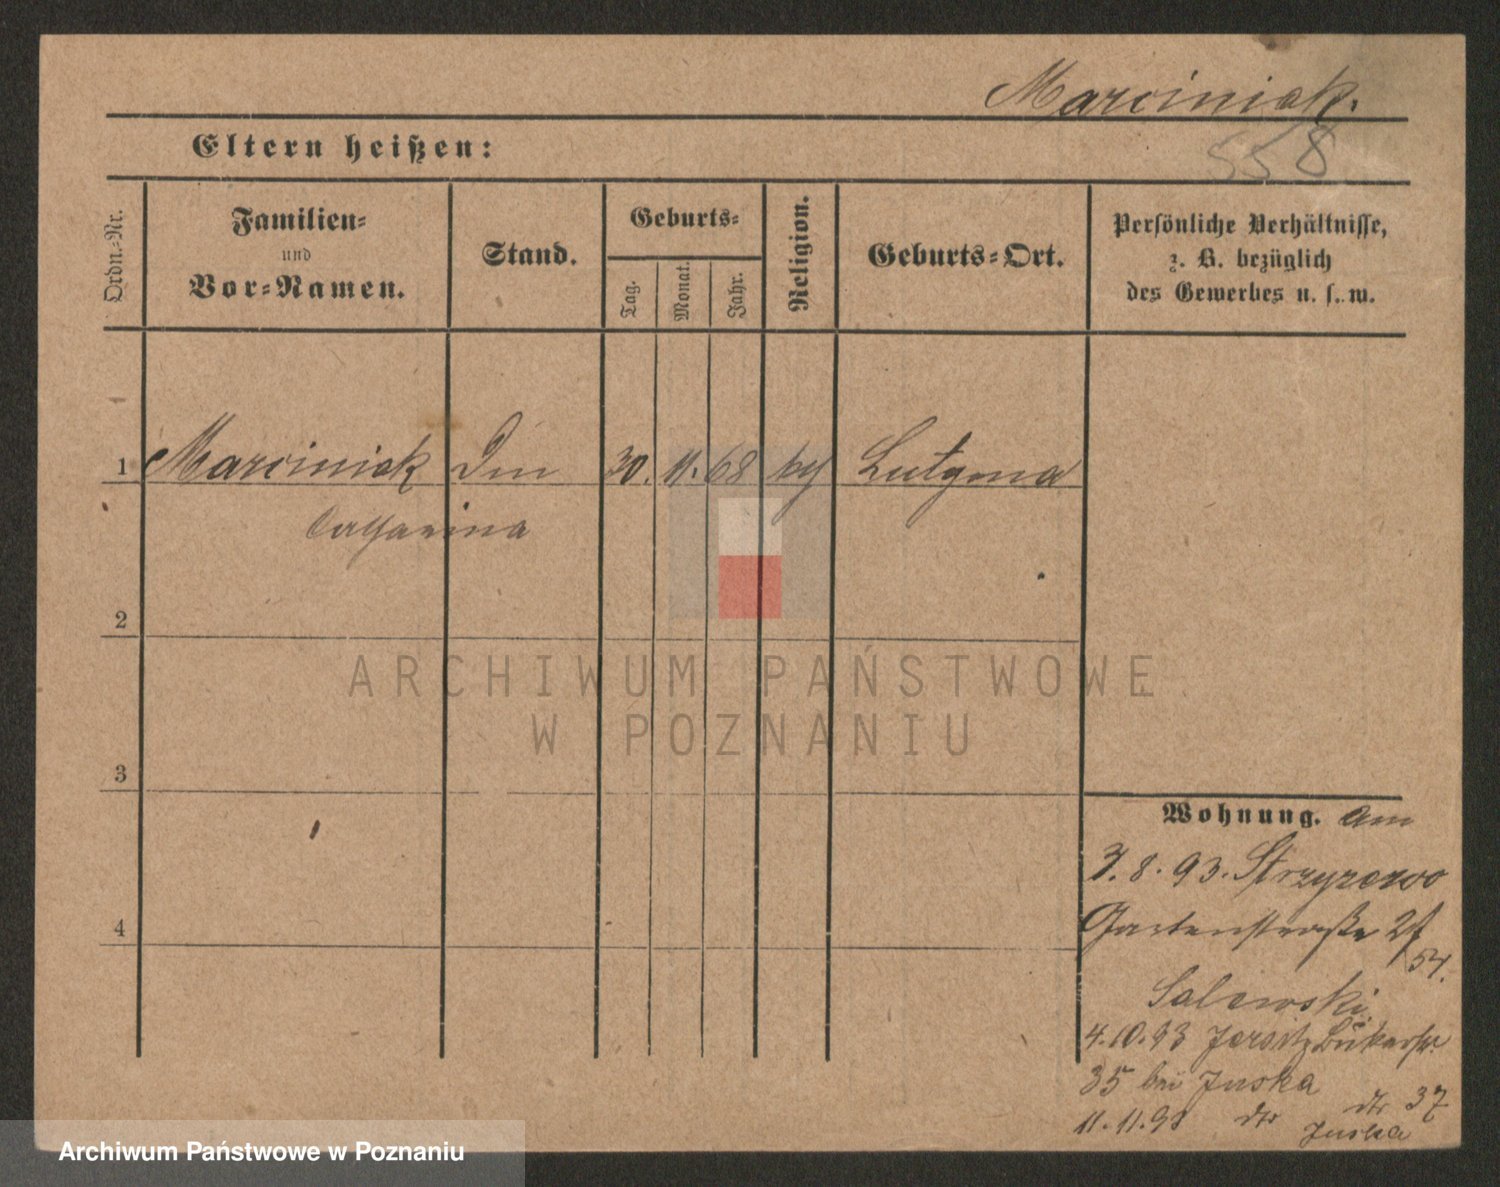 Marciniak.
558
Eltern heißen:
Ordn.-Nr.
Familien-
und
Vor-Namen.
Stand.
Geburts-
Tag.
Monat.
Jahr.
Religion.
Geburts-Ort.
Persönliche Verhältnisse,
z. B. bezüglich
des Gewerbes u. s. w.
1 Marciniak 30. 11. 68 Lutynia
Catharina
2
3
4
ARCHIWUM PAŃSTWOWE
W POZNANIU
Wohnung. am
7.8.93.
Gartenstraße
Salewski
4.10.93 Jersitz
35 bei Juska
11.11.93 dto 37
Juska
Archiwum Państwowe w Poznaniu